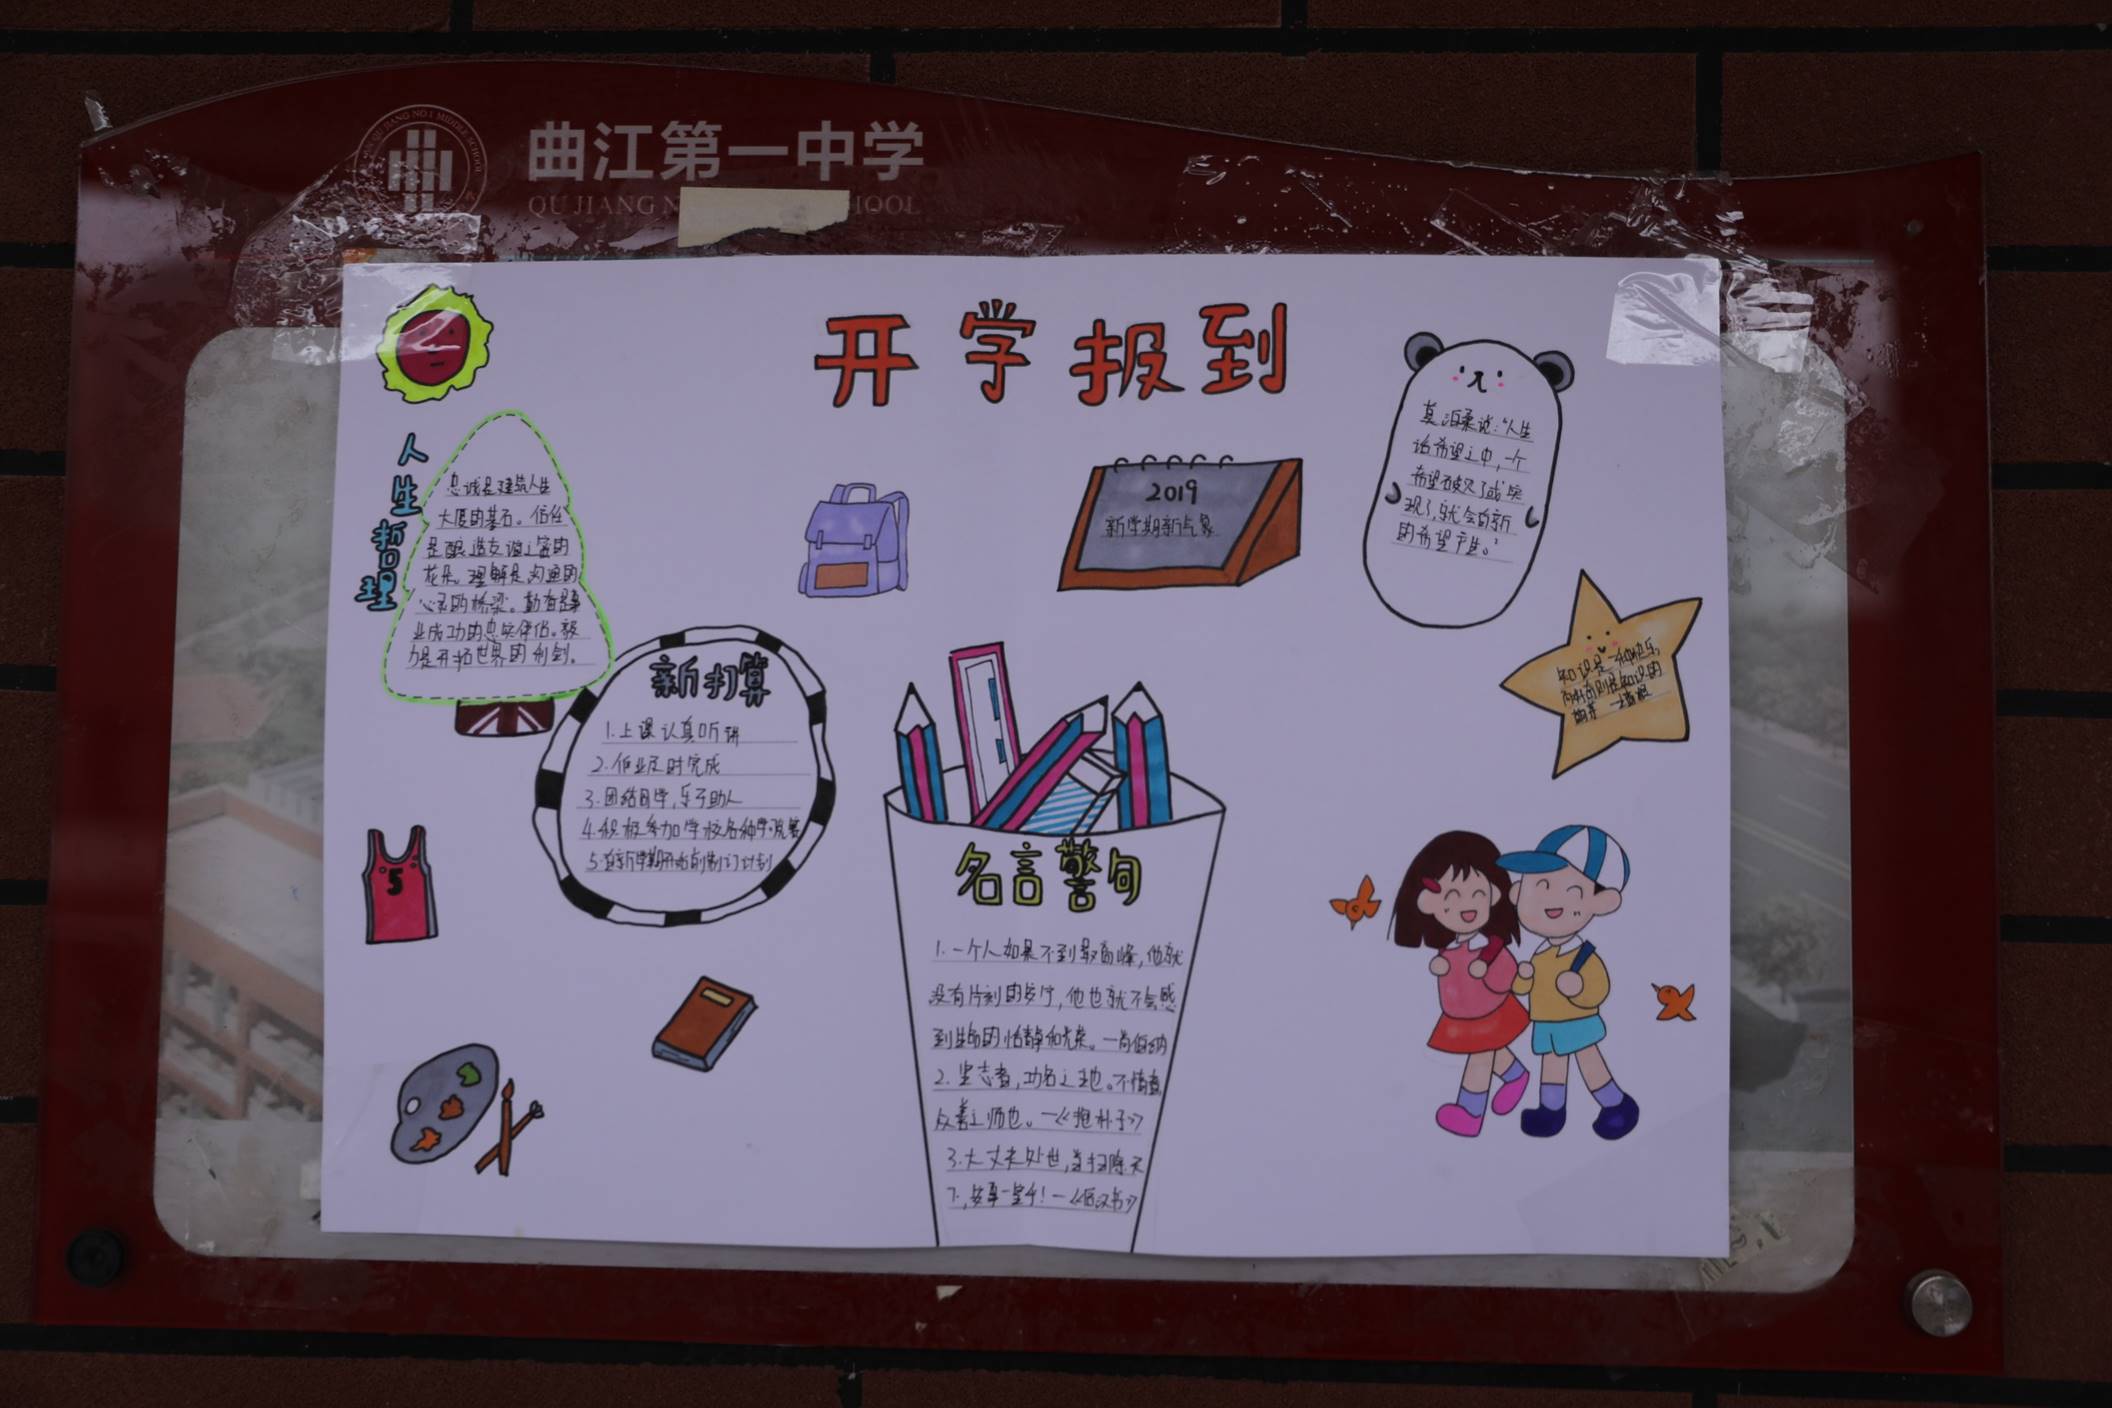 曲江第一中学
QU JIANG
HOOL
开学报到
人生哲理
忠诚是建筑人生
大厦的基石。信任
是酿造友谊之蜜的
花朵。理解是沟通的
心灵的桥梁。勤奋是事
业成功的忠实伴侣。毅
力是开拓世界的利剑。
2019
新学期新气象
莫泊桑说:"人生
活希望之中,一个
希望破灭了或实
现了,就会有新
的希望产生。"
知识是一种快乐,
新打算
1.上课认真听讲
2.作业及时完成
3.团结同学,乐于助人
4.积极参加学校各种学
5.在新学期开始前制订计划
5
名言警句
1.一个人如果不到最高峰,他就
没有片刻的安宁,他也就不会感
到生命的恬静和光荣。一肖伯纳
2.坚志者,功名之柱也。不惰者,
众善之师也。一《抱朴子》
3.大丈夫处世,当扫除天
下,安事一室乎!一《后汉书》